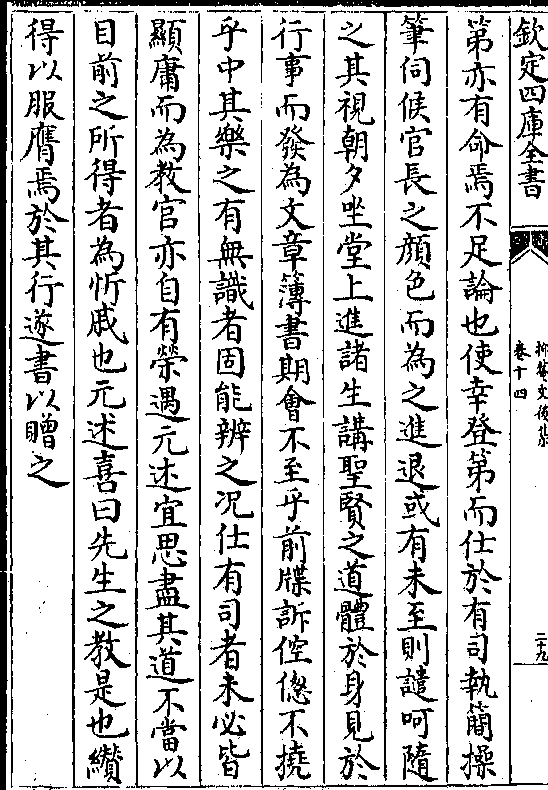 欽定四庫全書
抑菴文後集
卷十四
二十九
第亦有命焉不足論也使幸登第而仕於有司執簡操
筆伺候官長之顔色而為之進退或有未至則譴呵隨
之其視朝夕坐堂上進諸生講聖賢之道體於身見於
行事而發為文章簿書期會不至乎前牒訴倥傯不撓
乎中其樂之有無識者固能辨之况仕有司者未必皆
顯庸而為教官亦自有榮遇元述宜思盡其道不當以
目前之所得者為忻戚也元述喜曰先生之教是也纘
得以服膺焉於其行遂書以贈之